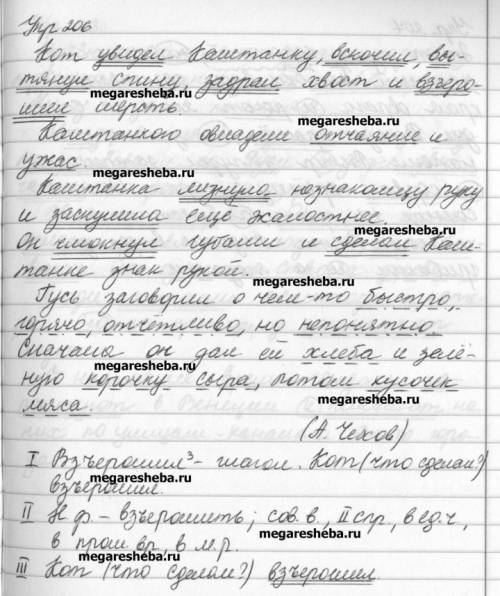 Упр 206
Кот увидел Каштанку, вскочил, вы-
тянул спину, задрал хвост и взъеро-
megaresheba.ru
шил шерсть.
Каштанкою овладели отчаяние и
megaresheba.ru
ужас.
megaresheba.ru
Каштанка лизнула незнакомцу руку
и заскулила ещё жалостнее.
megaresheba.ru
Он чмокнул губами и сделал Каш-
megaresheba.ru
танке знак рукой.
megaresheba.ru
Гусь заговорил о чём-то быстро,
megaresheba.ru
горячо, отчётливо, но непонятно
Сначала он дал ей хлеба и зелё-
megaresheba.ru
ную корочку сыра, потом кусочек
megaresheba.ru
мяса.
(А. Чехов)
megaresheba.ru
I Взъерошил³ - глагол. Кот (что сделал?)
взъерошил.
megaresheba.ru
II Н.ф. - взъерошить; сов.в., II спр., в ед.ч.,
в прош.вр., в м.р.
megaresheba.ru
III Кот (что сделал?) взъерошил.
megaresheba.ru